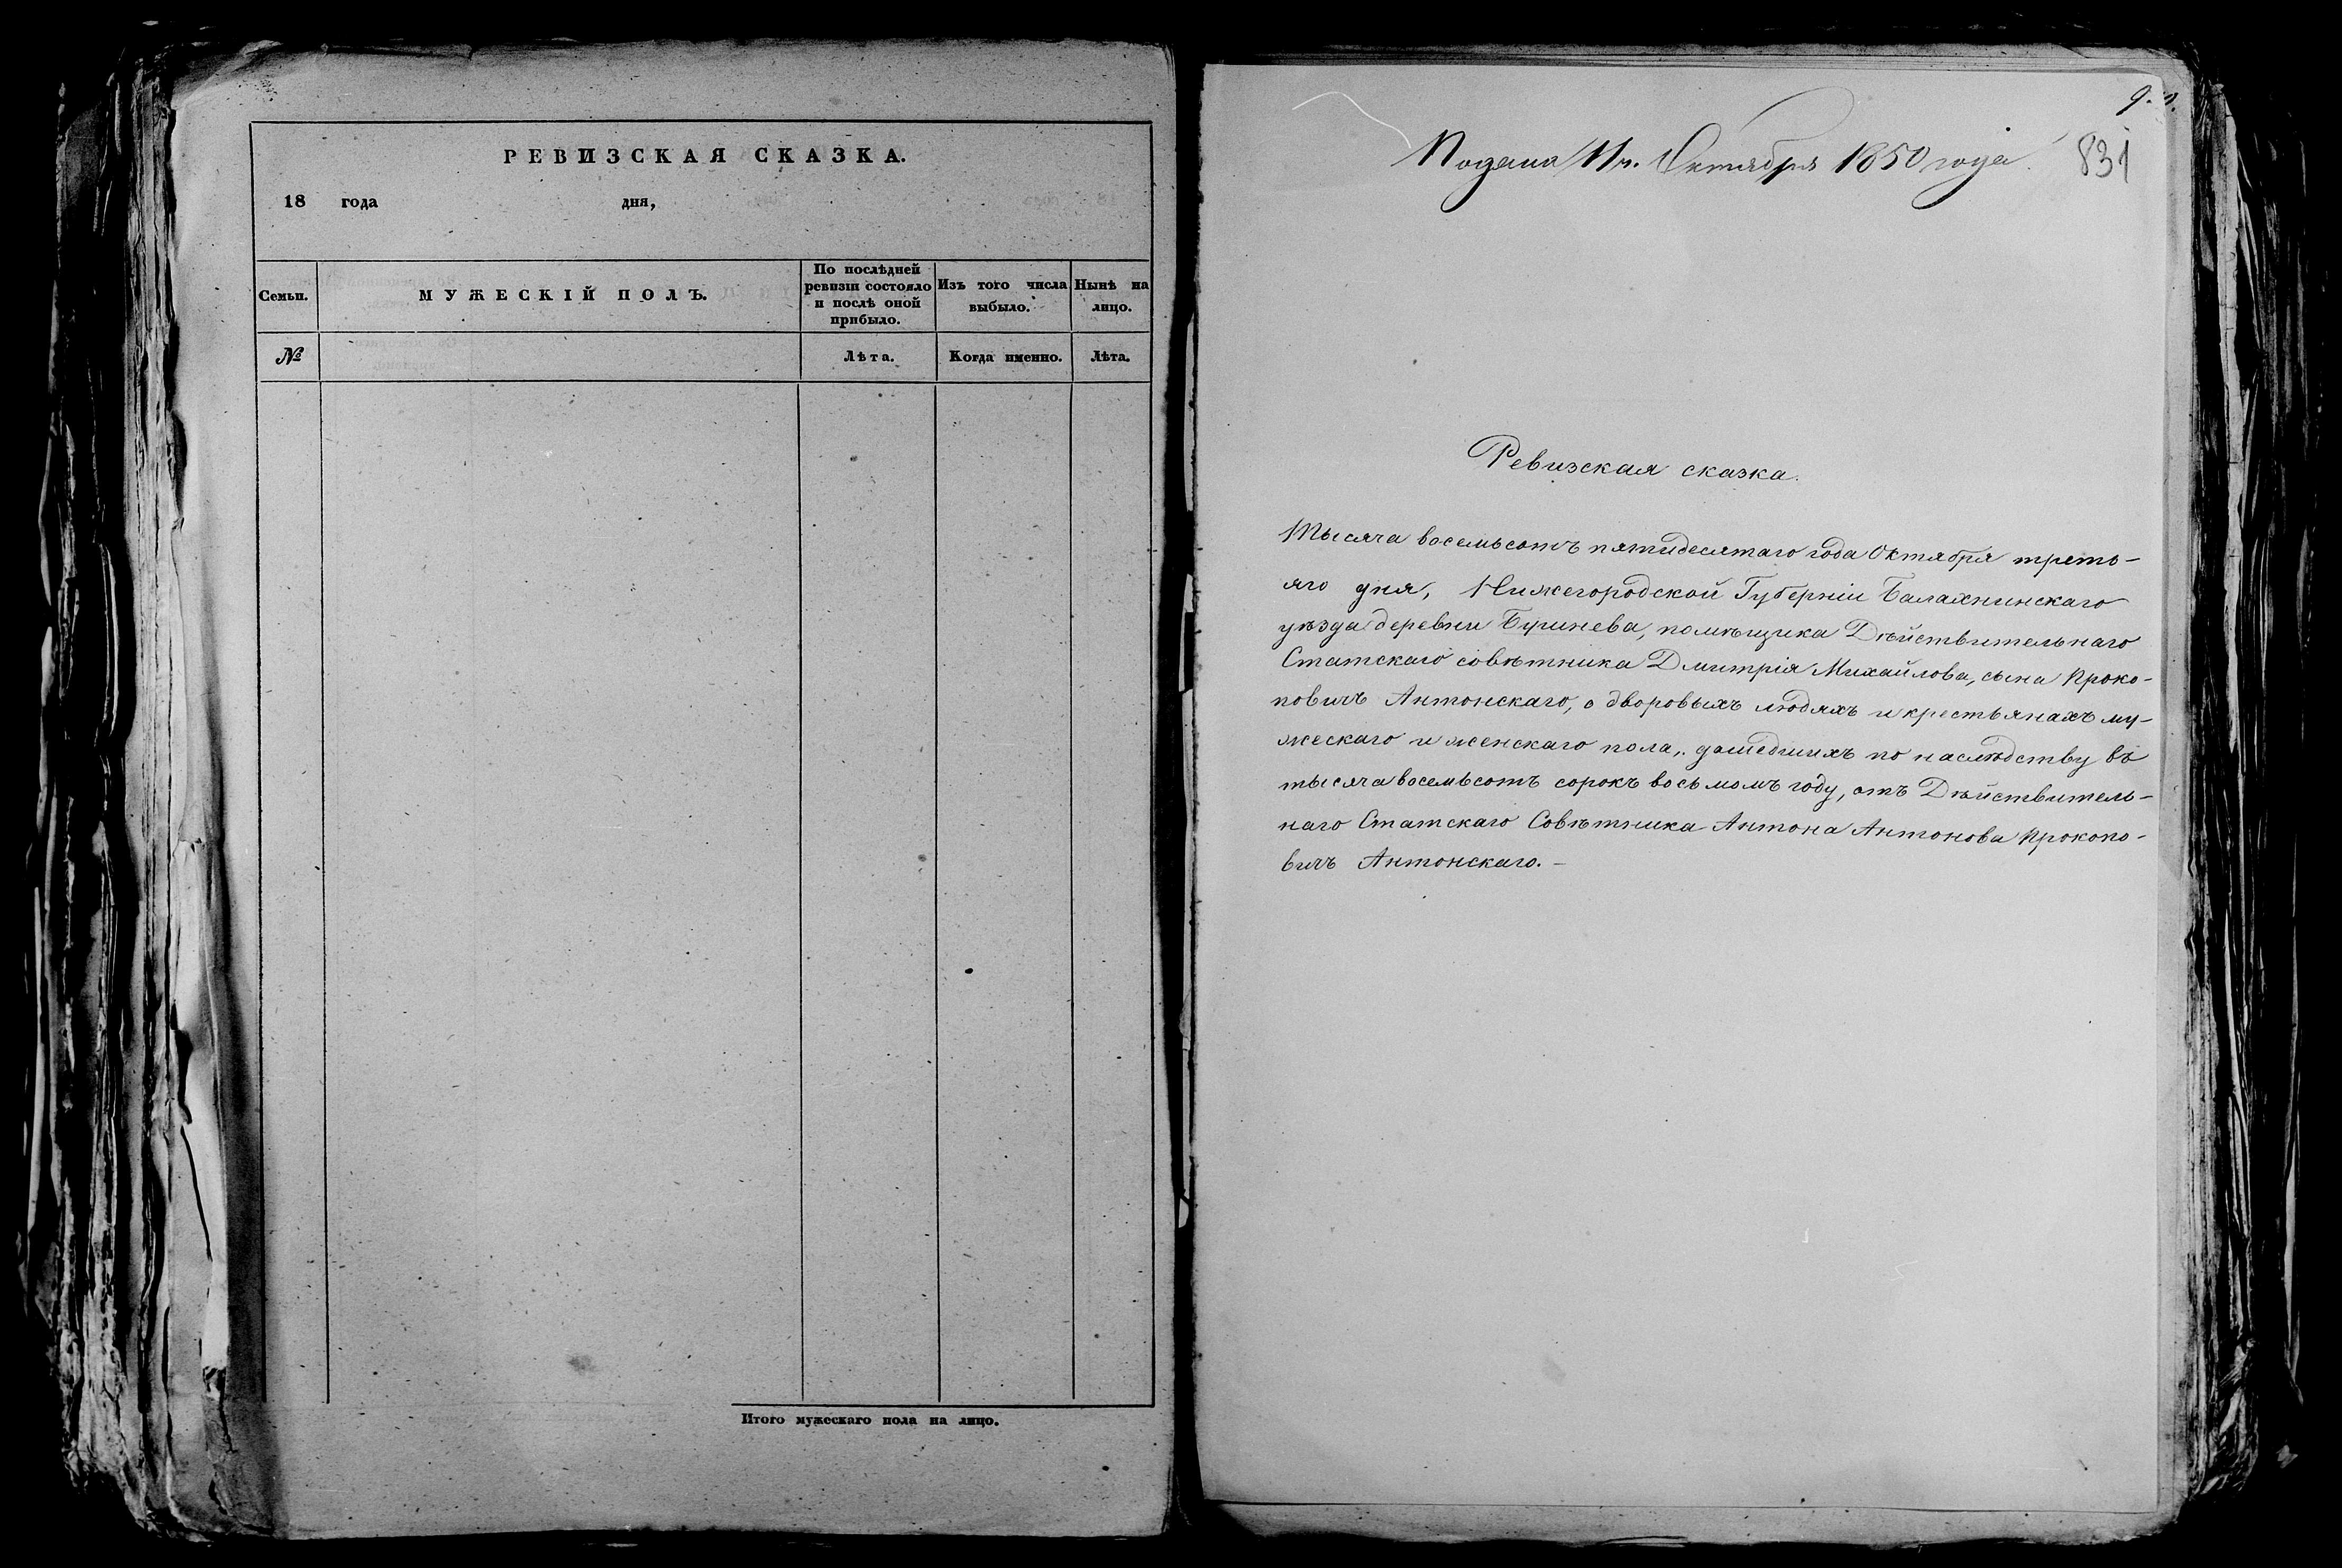 РЕВИЗСКАЯ СКАЗКА.
18 года дня,
Семьи.
МУЖЕСКІЙ ПОЛЪ.
По послѣдней
ревизіи состояло
и послѣ оной
прибыло.
Изъ того числа
выбыло.
Нынѣ на
лицо.
№
Лѣта.
Когда именно.
Лѣта.
Итого мужескаго пола на лицо.
Подана 11 ч. Октября 1850 года
831
Ревизская сказка.
Тысяча восемьсотъ пятидесятаго года Октября треть-
яго дня, Нижегородской Губерніи Балахнинскаго
уѣзда деревни помѣщика Дѣйствительнаго
Статскаго совѣтника Дмитрія Михайлова, сына Проко-
повичъ Антонскаго, о дворовыхъ людяхъ и крестьянахъ му-
жескаго и женскаго пола, дошедшихъ по наслѣдству въ
тысяча восемьсотъ сорокъ восьмомъ году, отъ Дѣйствитель-
наго Статскаго Совѣтника Антона Антонова Прокопо-
вичъ Антонскаго. –